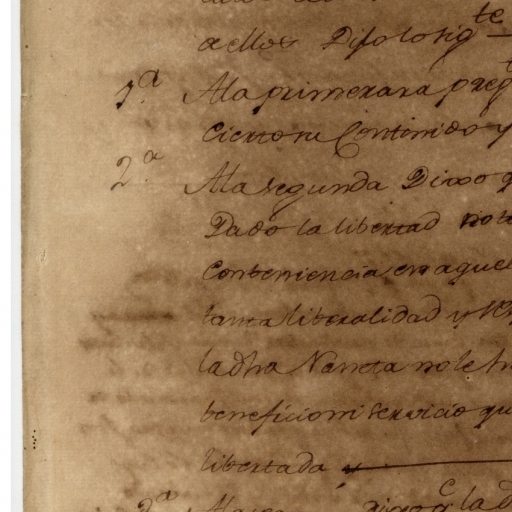 a ellos Dijo lo sig.te
1.a A la primera preg
cierto su Contenido y
2.a A la segunda Dixo q
Dado la libertad no le
Conbeniencia en aquel
tanta liberalidad y
la dha no le h
beneficio ni servicio qu
libertada y
3.a c la d